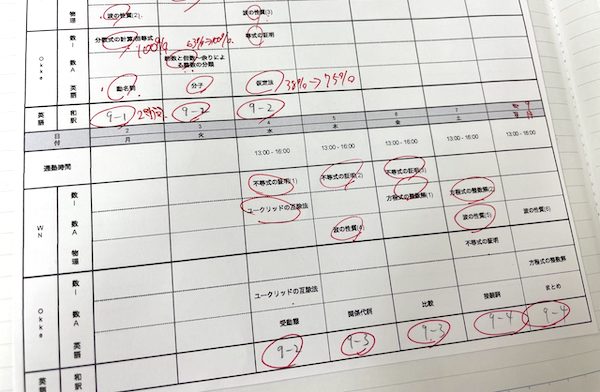 物理 波の性質(2) 波の性質(3)
数Ⅰ 分数式の計算/恒等式 等式の証明
100% 63%→100%
数A 約数と倍数～余りによる整数の分類
Okke
英語 動名詞 分子 仮定法 38%→75%
英語 和訳 9-1 9-2 9-2
日付 2 3 4 5 6 7
月 火 水 木 金 土
13:00 - 16:00 13:00 - 16:00 13:00 - 16:00 13:00 - 16:00 13:00 - 16:00
通塾時間
WN
数Ⅰ 不等式の証明(1) 不等式の証明(2) 不等式の証明(3)
数A ユークリッドの互除法 方程式の整数解(1) 方程式の整数解(2)
物理 波の性質(4) 波の性質(5) 波の性質(6)
Okke
数Ⅰ 不等式の証明
数A ユークリッドの互除法 方程式の整数解
英語 受動態 関係代詞 比較 接続詞 まとめ
英語 和訳 9-2 9-3 9-3 9-4 9-4